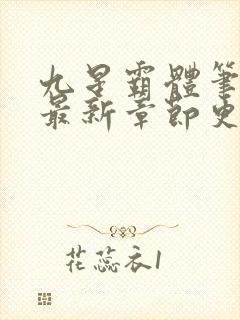 九星霸體筆
最新章節史
花蕊衣1